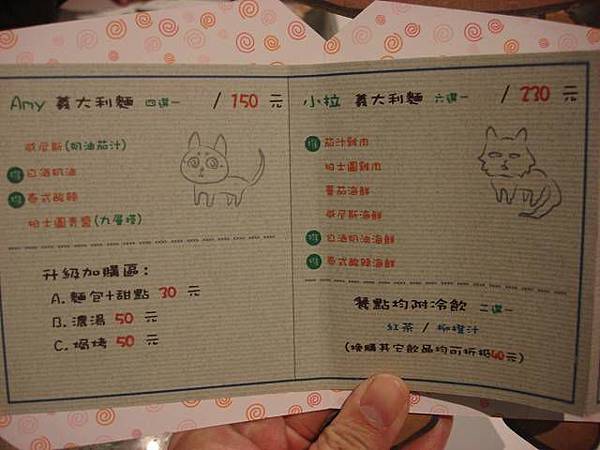 Amy 義大利麵 四選一 / 150 元
威尼斯(奶油茄汁)
推 白酒奶油
推 泰式酸辣
柏士圖青醬(九層塔)
升級加購區：
A. 麵包+甜點 30 元
B. 濃湯 50 元
C. 焗烤 50 元
小拉 義大利麵 六選一 / 230 元
推 茄汁雞肉
柏士圖雞肉
蕃茄海鮮
威尼斯海鮮
推 白酒奶油海鮮
推 泰式酸辣海鮮
餐點均附冷飲 二選一
紅茶 / 柳橙汁
(換購其它飲品均可折抵40元)